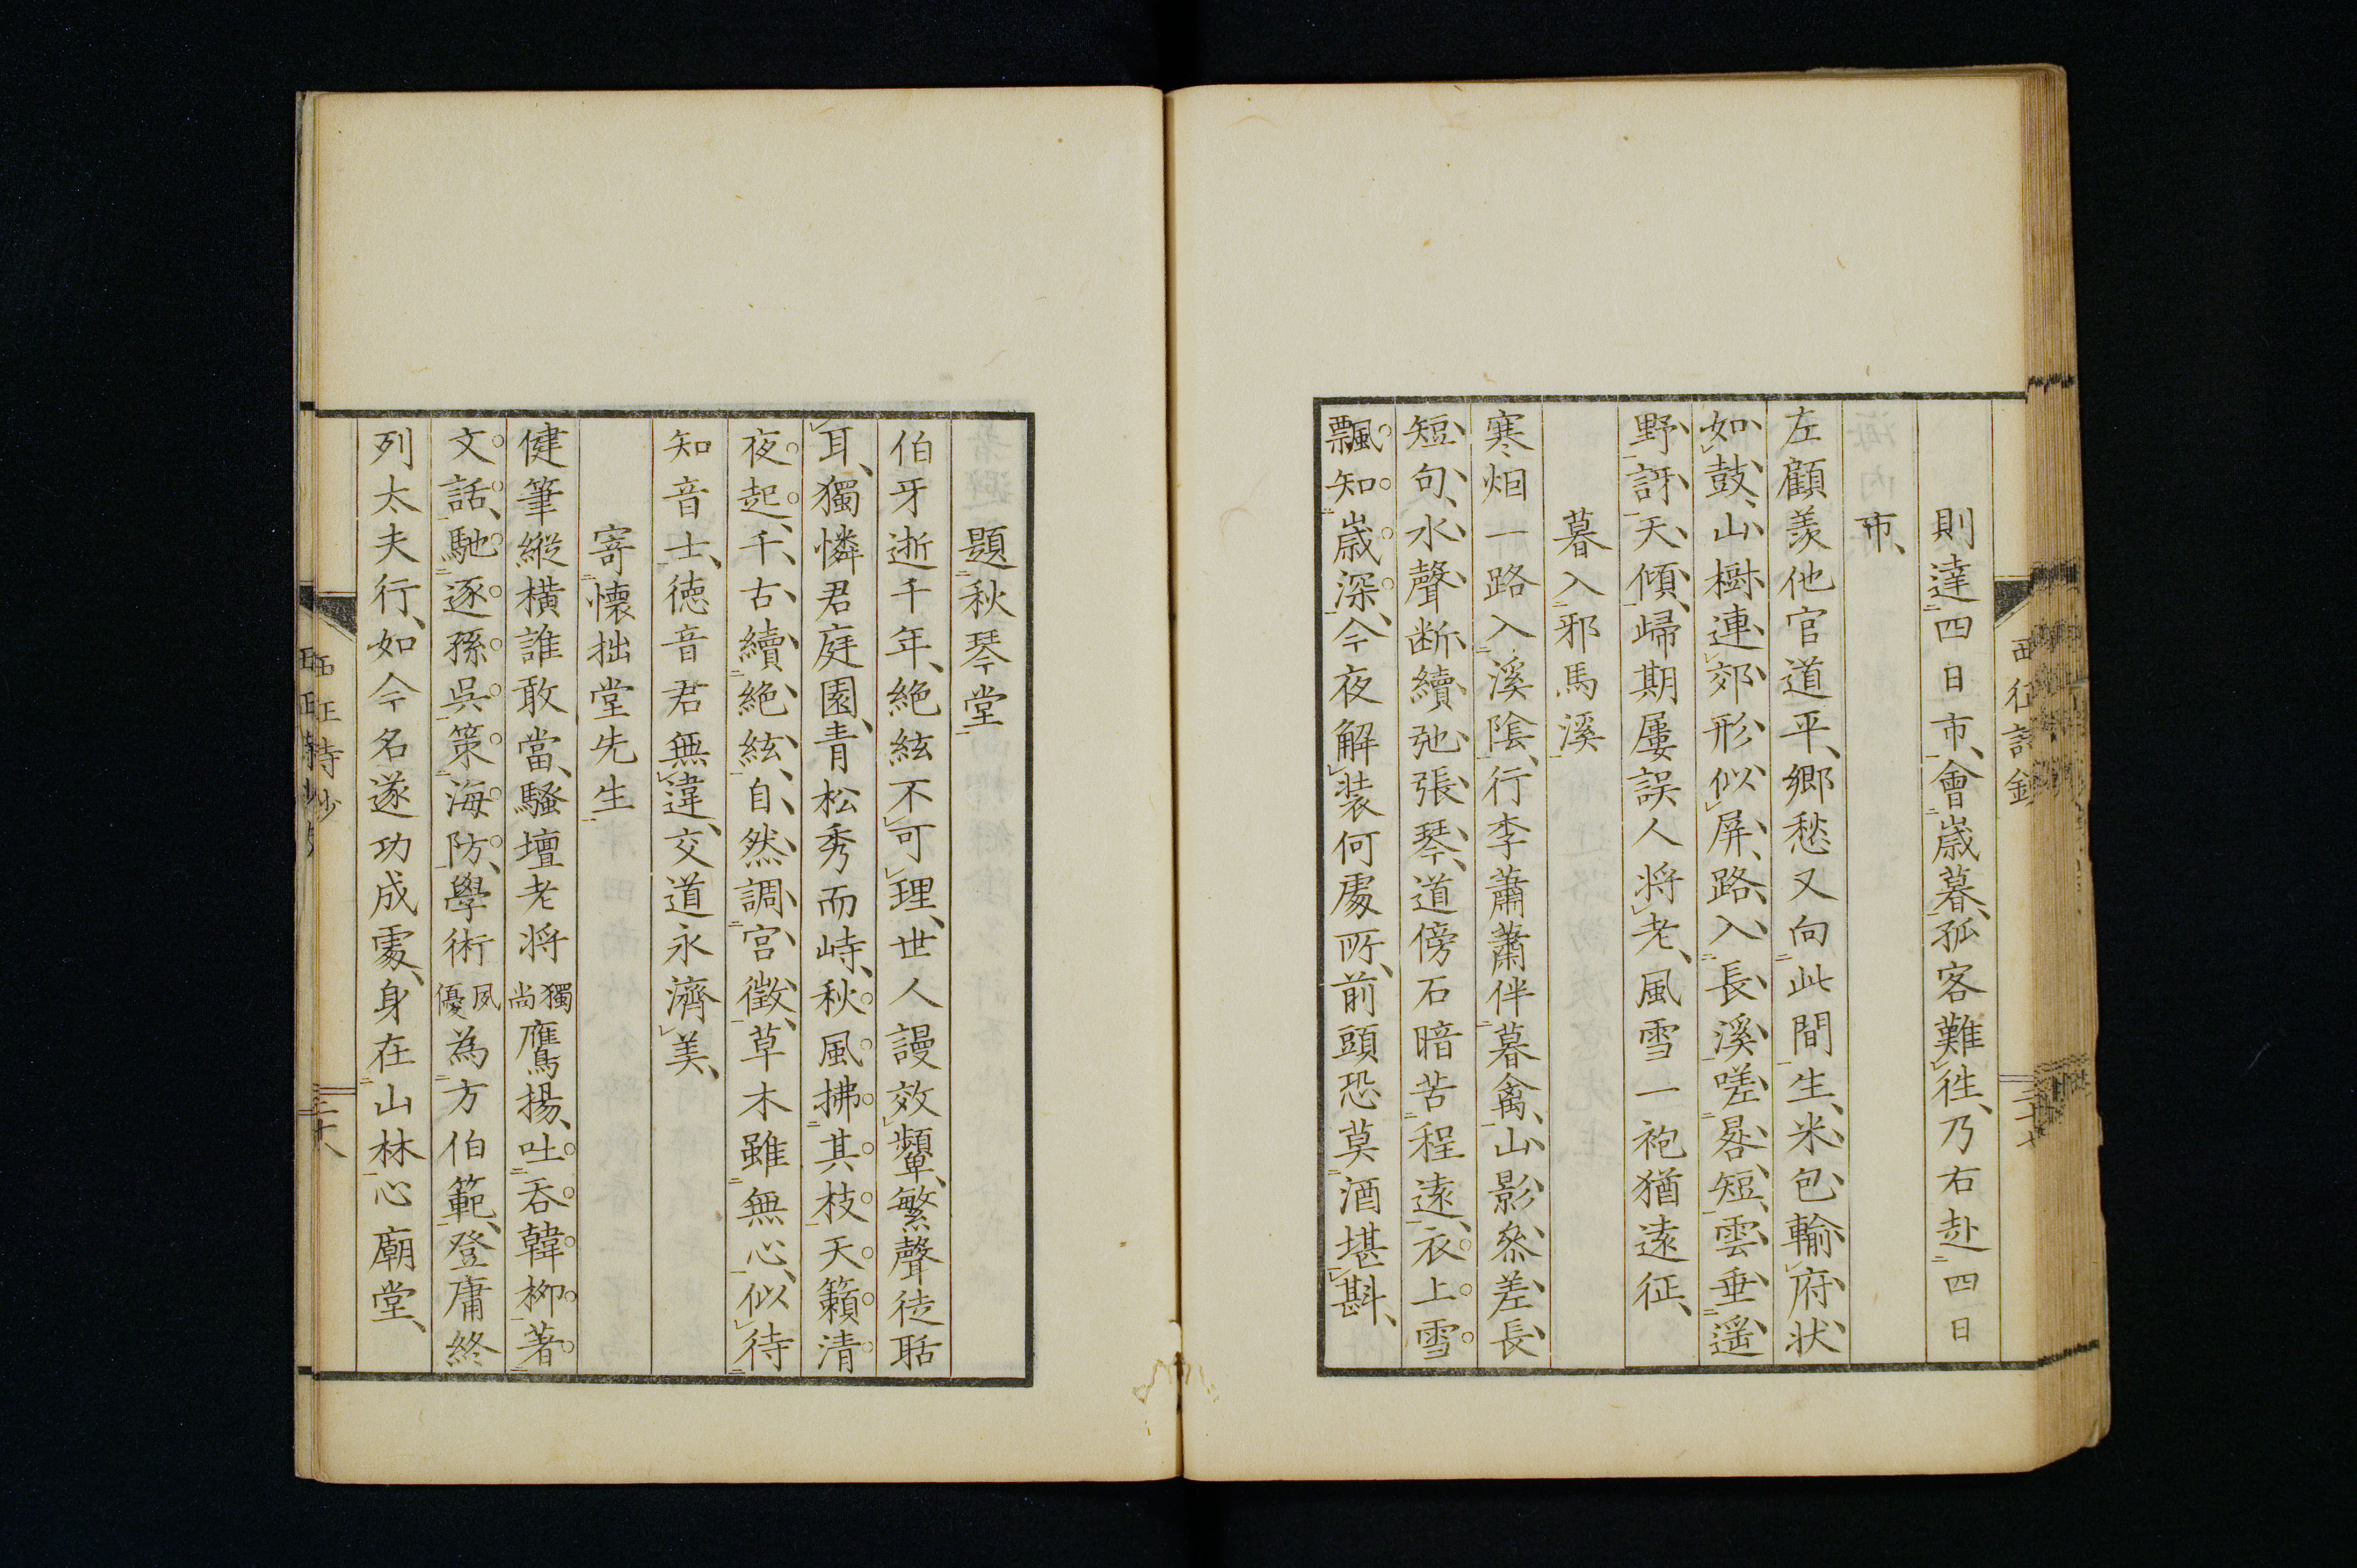 則達四日市、會歳暮、孤客難往、乃右赴四日
市、
左顧羡他官道平、郷愁又向此間生、米包輸府状
如鼓、山樹連郊形似屏、路入長溪嗟晷短、雲垂遥
野訝天傾、歸期屢誤人将老、風雪一袍猶遠征、
暮入邪馬溪
寒烟一路入溪陰、行李蕭蕭伴暮禽、山影叅差長
短句、水聲断續弛張琴、道傍石暗苦程遠、衣上雪
飄知歳深、今夜解装何處所、前頭恐莫酒堪斟、
題秋琴堂
伯牙逝千年、絶絃不可理、世人謾效顰、繁聲徒聒
耳、獨憐君庭園、青松秀而峙、秋風拂其枝、天籟清
夜起、千古續絶絃、自然調宮徵、草木雖無心、似待
知音士、徳音君無違、交道永濟美、
寄懐拙堂先生
健筆縱横誰敢當、騒壇老将獨尚鷹揚、吐呑韓柳著
文話、馳逐孫呉策海防、學術夙優為方伯範、登庸終
列大夫行、如今名遂功成處、身在山林心廟堂、
三十八